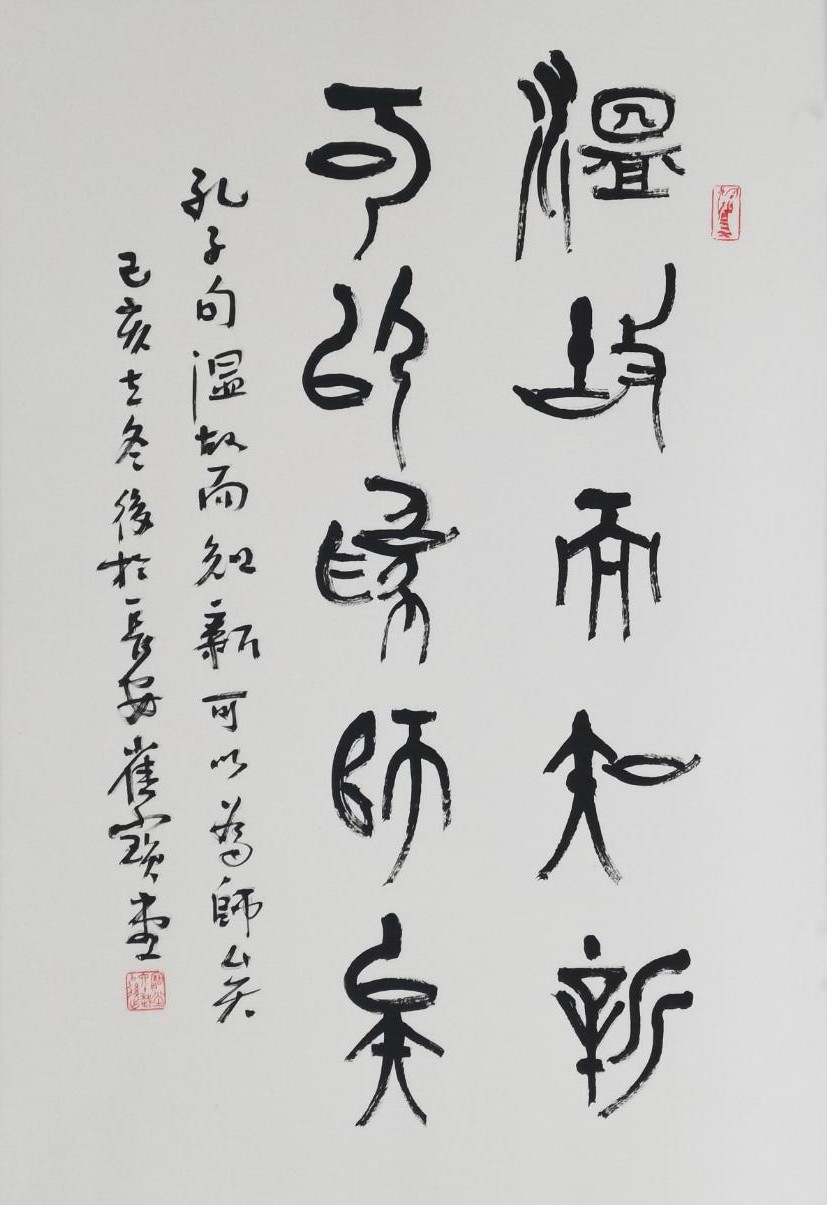 溫故而知新
可以為師矣
孔子句溫故而知新可以為師矣
己亥立冬後於長安崔寶堂